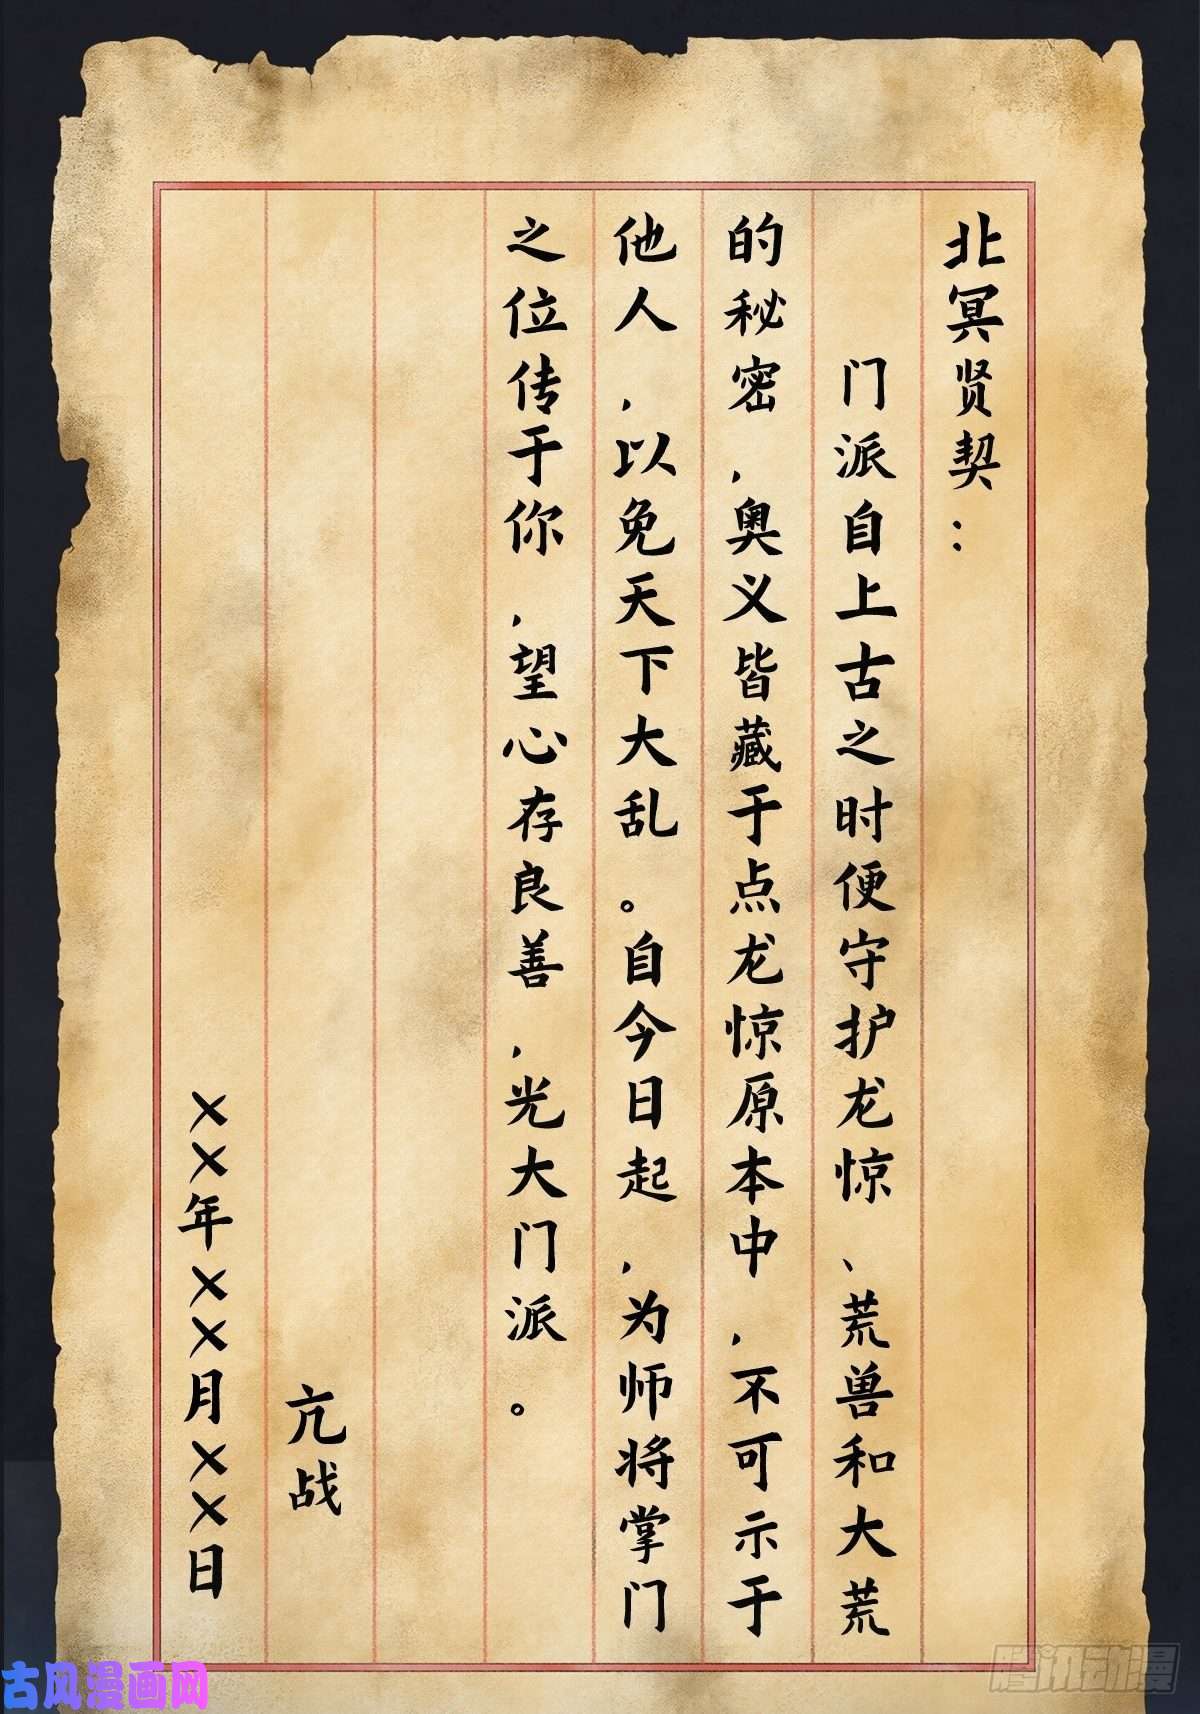 北冥贤契：
门派自上古之时便守护龙惊、荒兽和大荒
的秘密，奥义皆藏于点龙惊原本中，不可示于
他人，以免天下大乱。自今日起，为师将掌门
之位传于你，望心存良善，光大门派。
亢战
××年××月××日
古风漫画网
腾讯动漫